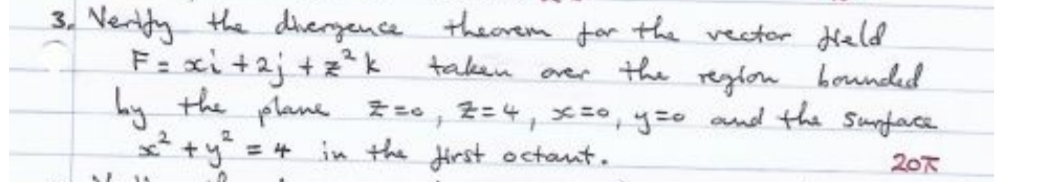 3. Verify the divergence theorem for the vector field
F = xi + 2j + z²k taken over the region bounded
by the plane z=0, z=4, x=0, y=0 and the surface
x² + y² = 4 in the first octant.
20π